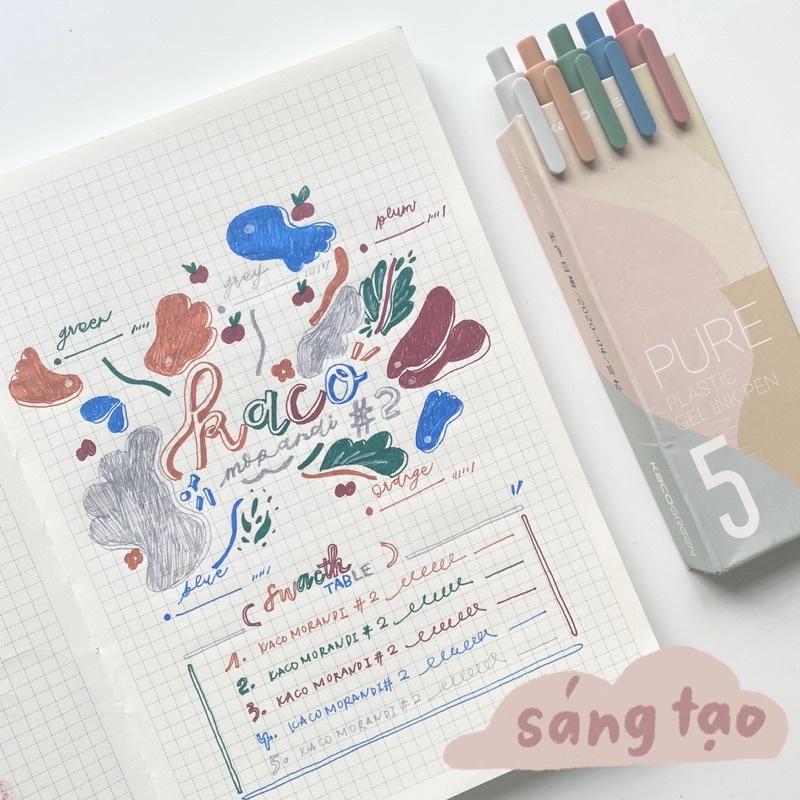 plum
grey
green
kaco
morandi #2
orange
blue
Swacth
TABLE
1. KACO MORANDI #2
2. KACO MORANDI #2
3. KACO MORANDI #2
4. KACO MORANDI #2
5. KACO MORANDI #2
PURE
PLASTIC
GEL INK PEN
5
KACOGREEN
sáng tạo